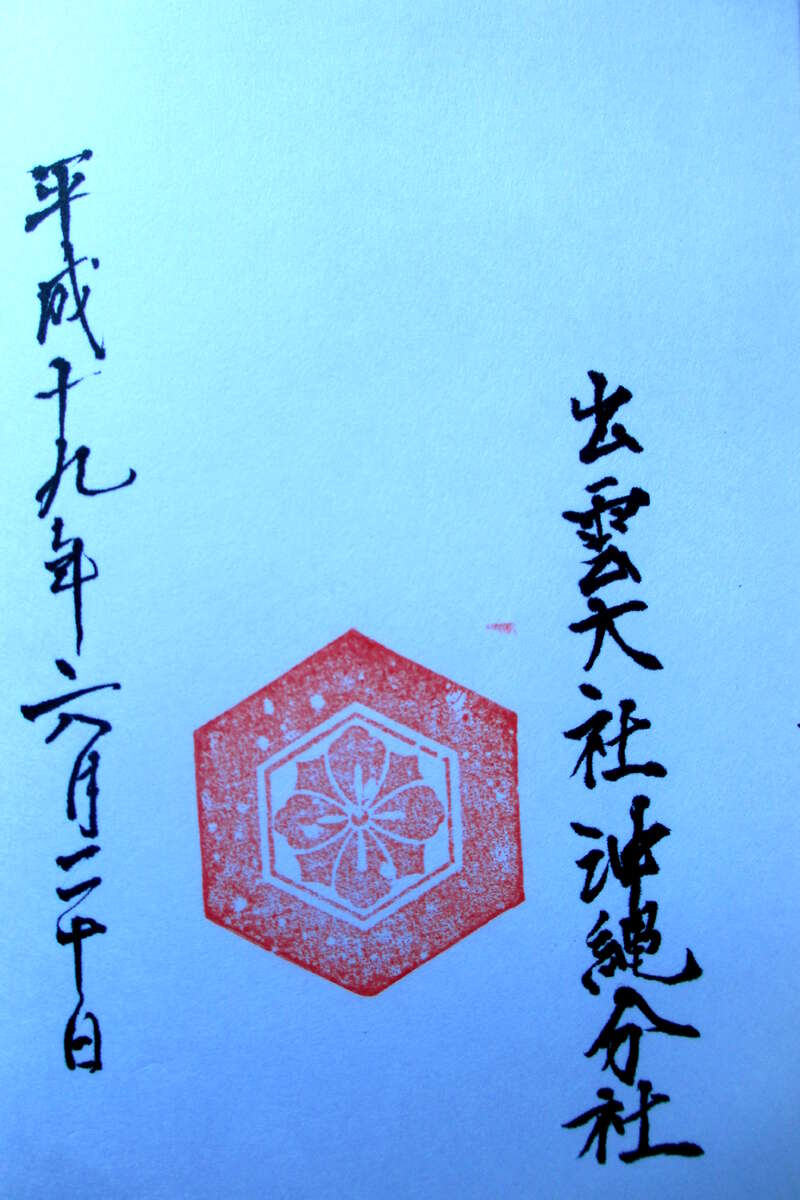 出雲大社沖縄分社
平成十九年六月二十日